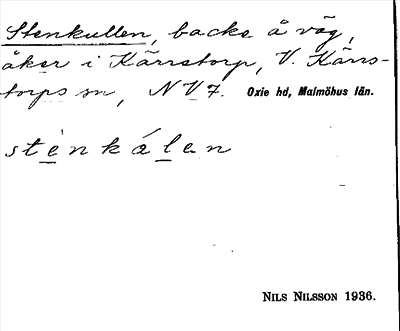 Stenkullen, backe å väg,
åker i Kärrstorp, V. Kärrs-
torps sn, NV7. Oxie hd, Malmöhus län.
stènkálen
NILS NILSSON 1936.